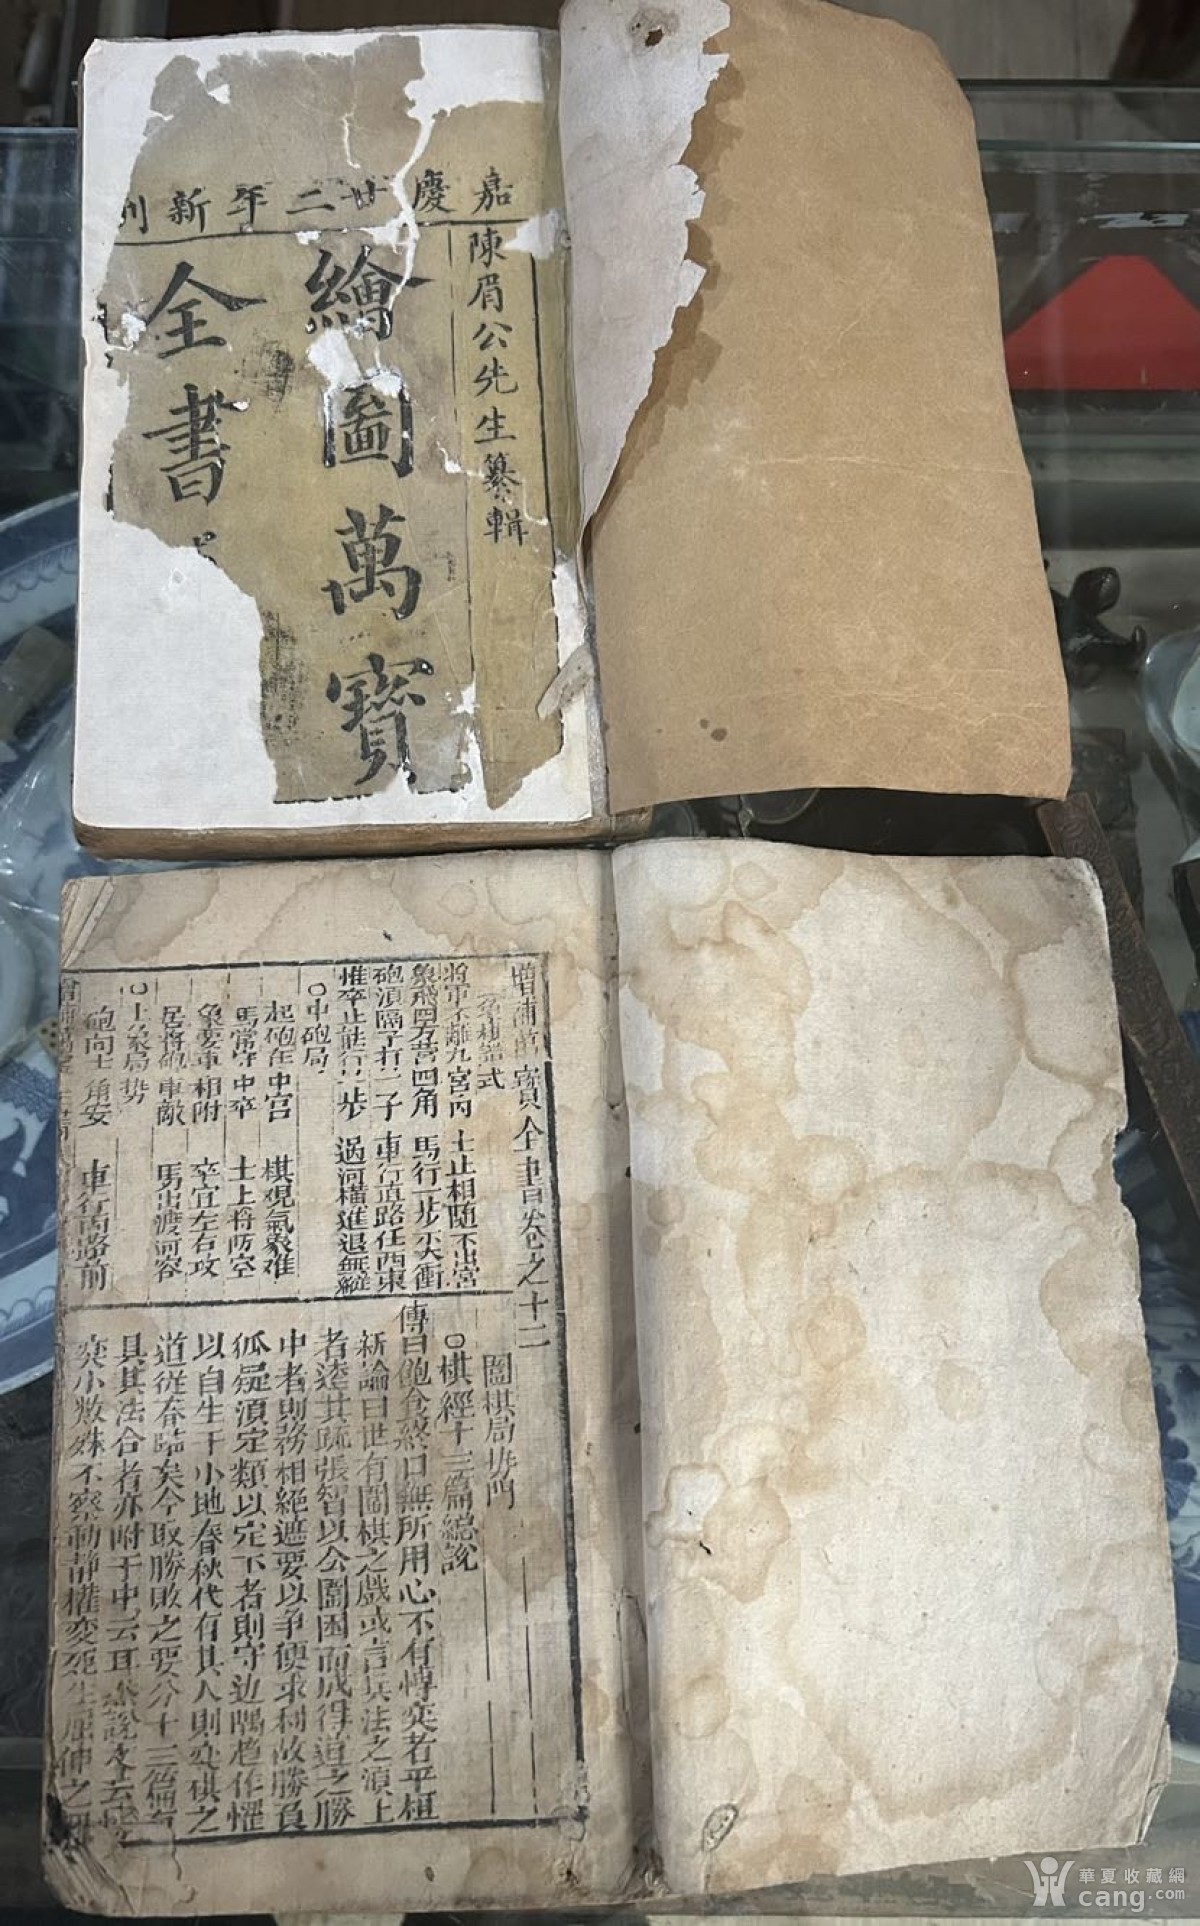 嘉慶廿二年新刊
陳眉公先生纂輯
繪圖萬寶
全書
增補萬寶全書卷之十二
象棋譜式
將軍不離九宮內 士止相隨不出宮
象飛四方營四角 馬行一步一尖衝
砲須隔子打一子 車行直路任西東
惟卒止能行一步 過河橫進退無蹤
○中砲局
起砲在中宮 棋觀氣象雄
馬常守中卒 士上將防空
象要車相附 卒宜左右攻
居將砲車敵 馬出渡河容
○士象局勢
砲向士角安 車行兩路前
圍棋局勢門
○棋經十三篇總說
傳曰飽食終日無所用心不有博奕者乎桓
新論曰世有圍棋之戲或言兵法之類上
者遠其疏張智以公圍因而成得道之勝
中者則務相絕遮要以爭便求利故勝負
狐疑須定類以定下者則守边隅趨作罫
以自生于小地春秋代有其人則奕碁之
道從春臨矣今取勝敗之要分十三篇有
具其法合者亦附于中云耳
奕小數殊不察動靜權変死生屈伸之
華夏收藏網
cang.com